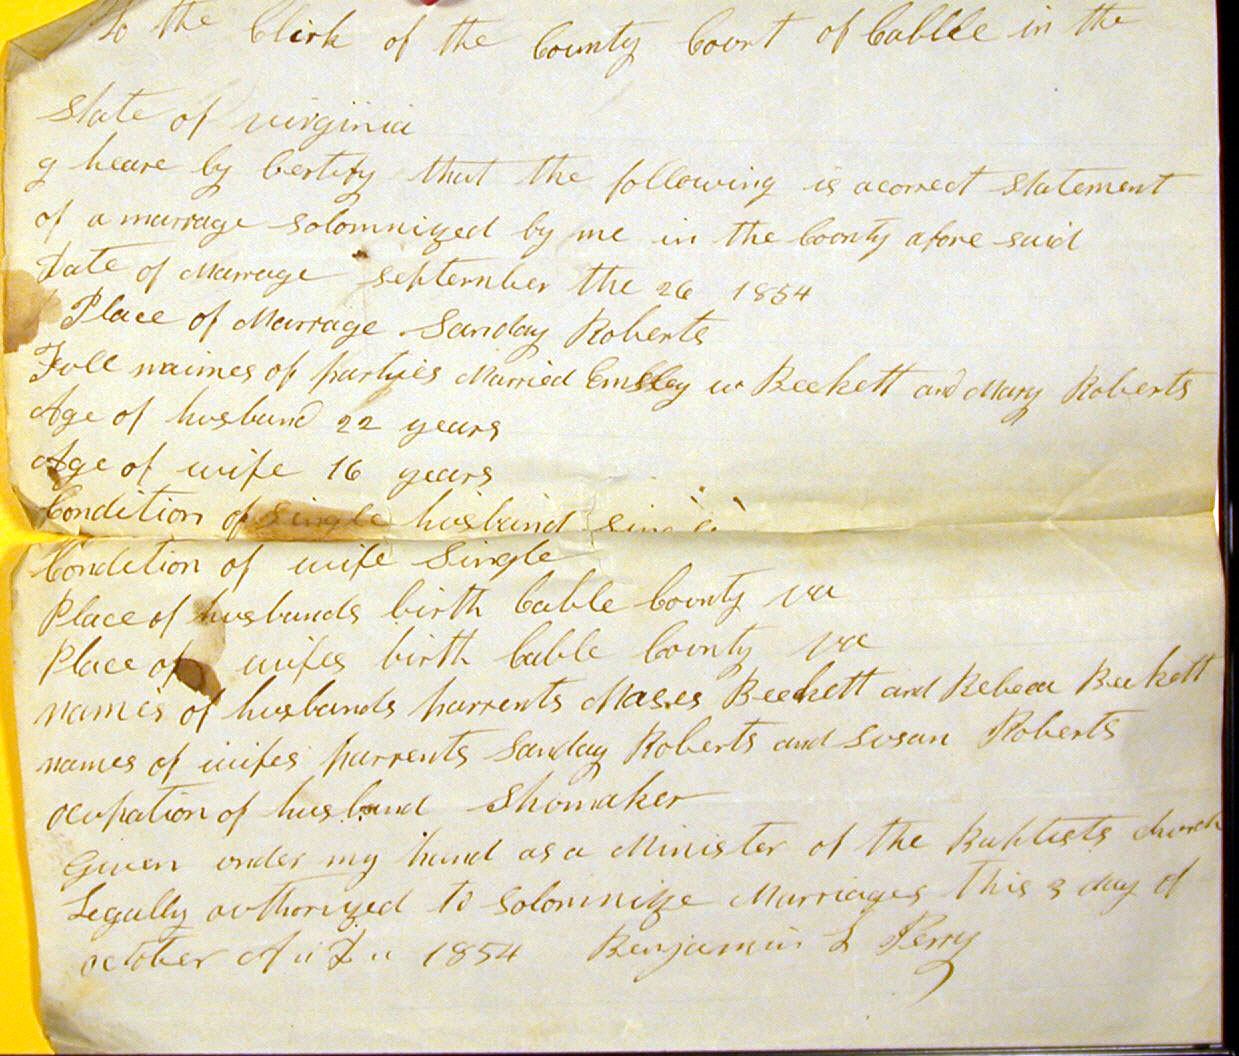 to the Clirk of the County Court of Cablle in the
state of virginia
g heare by Certify that the following is acorrect statement
of a marrage solomnized by me in the County afore said
Date of Marrage september the 26 1854
Place of Marrage Sanday Roberts
Full naimes of partyes Married Emsley w Beckett and Mary Roberts
Age of husband 22 years
Age of wife 16 years
Condition of single husband single
Condition of wife Single
Place of husbands birth Cable County va
Place of wifes birth Cable County va
names of husbands parrents Moses Beckett and Rebeca Beckett
names of wifes parrents Sanday Roberts and Susan Roberts
ocupation of husband Shomaker
Given under my hand as a Minister of the Baptists church
Legally authorized to Solominize Marriages this 3 day of
october A D 1854 Benjamin L Perry